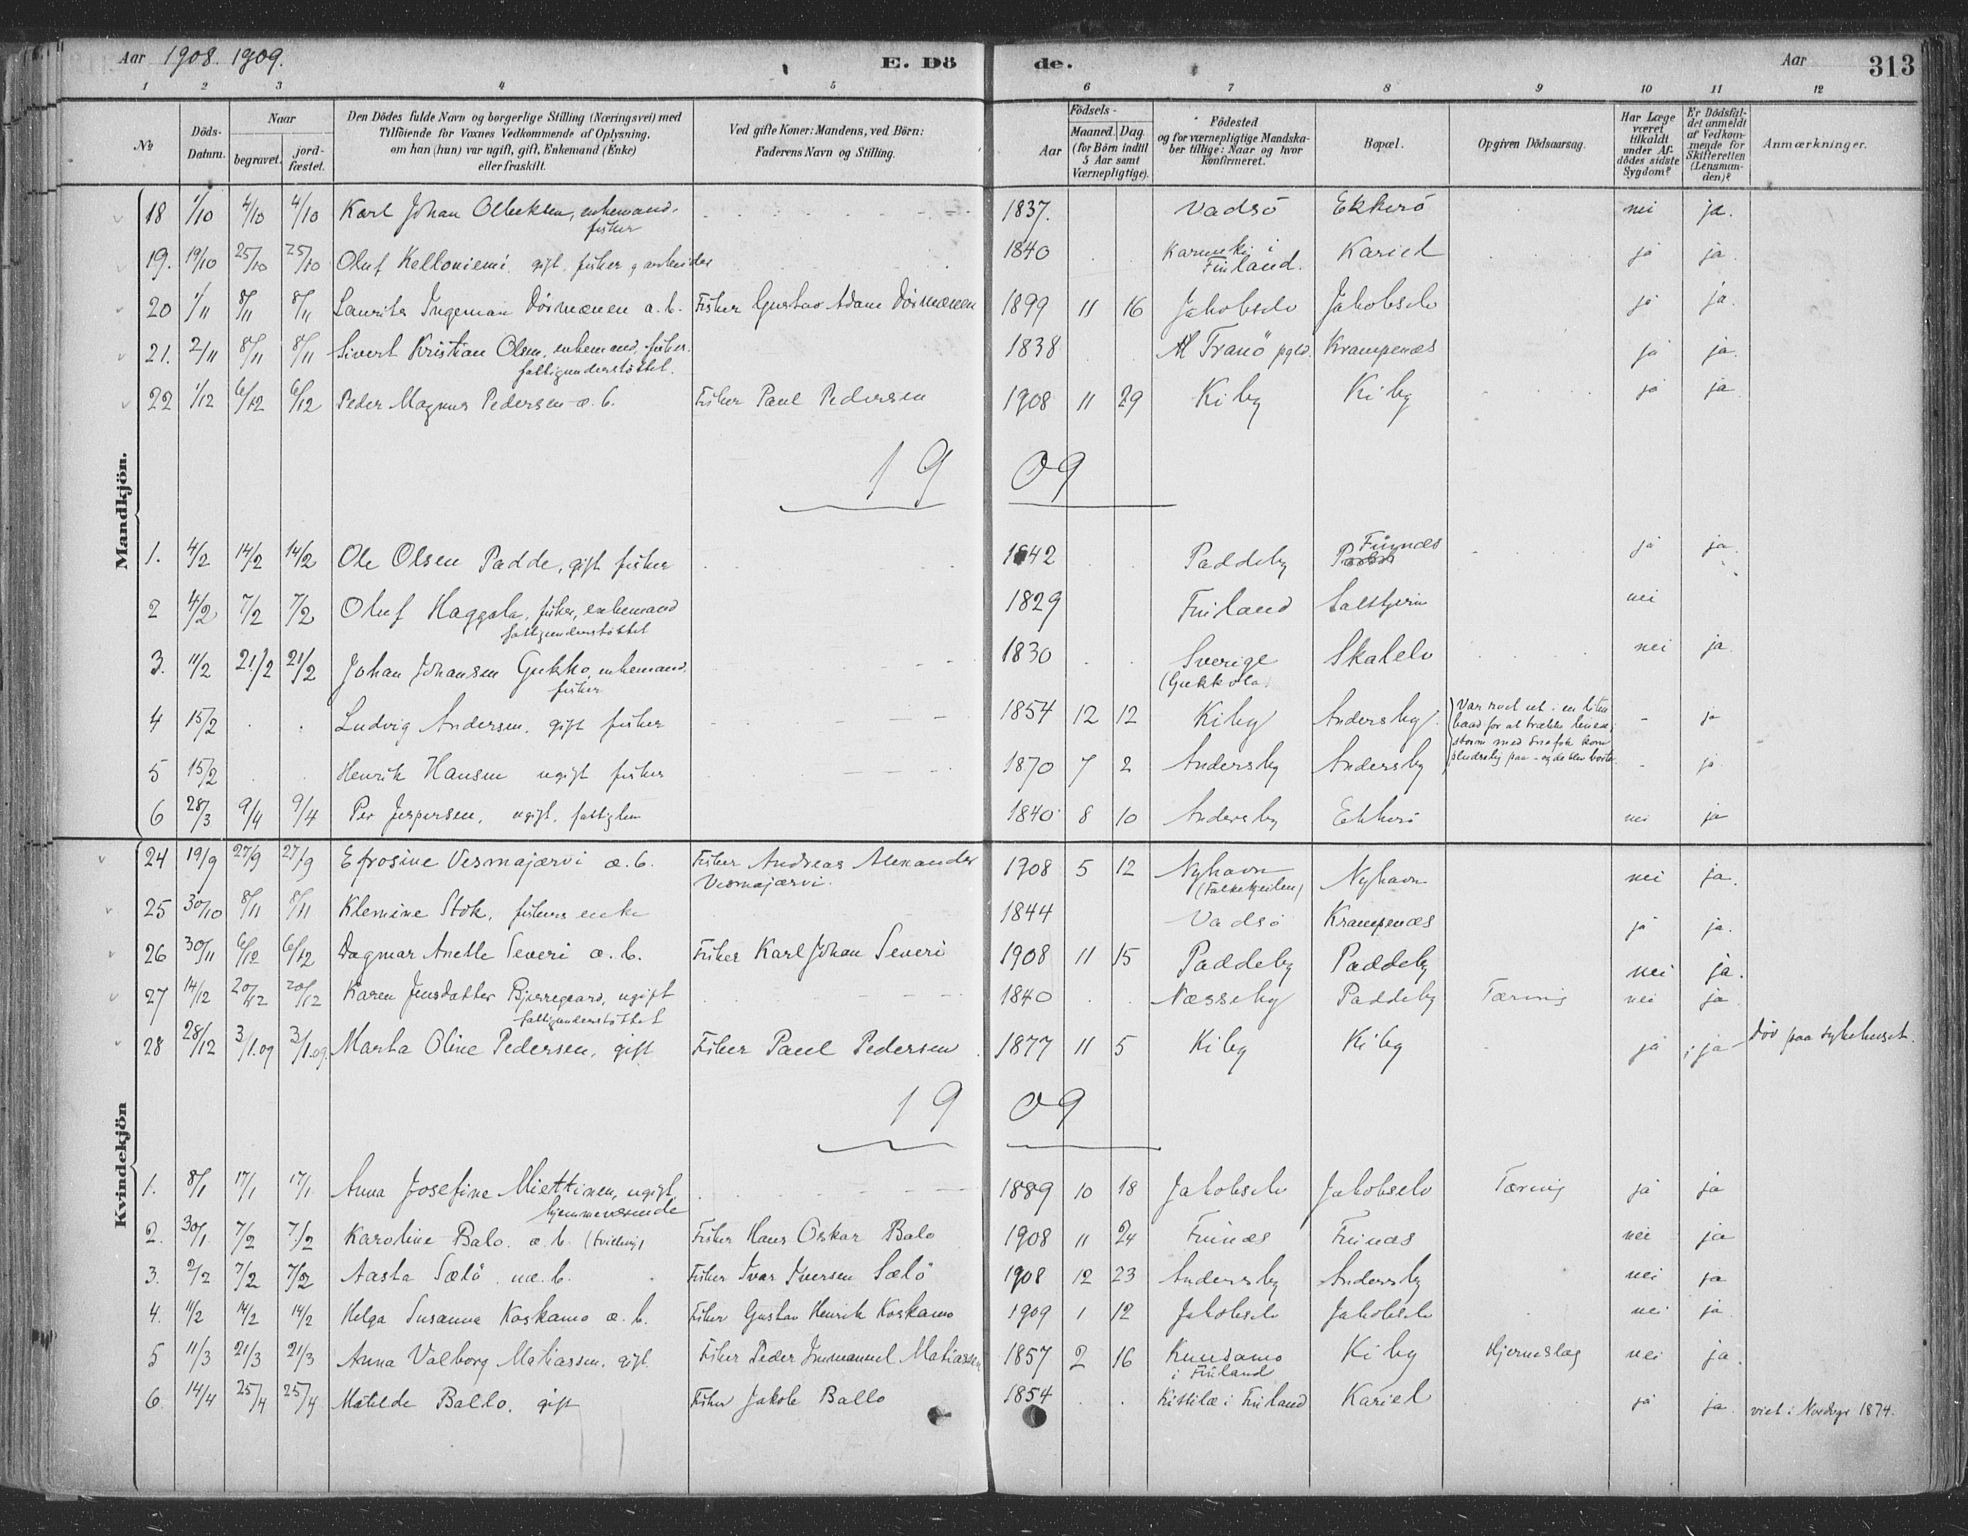 Aar 1908. 1909. E. Dö de. Aar 313
1 2 3 4 5 6 7 8 9 10 11 12
No Döds-Datum. Naar begravet. jord-fæstet. Den Dödes fulde Navn og borgerlige Stilling (Næringsvei) med Tilföiende for Voxnes Vedkommende af Oplysning, om han (hun) var ugift, gift, Enkemand (Enke) eller fraskilt. Ved gifte Koner: Mandens, ved Börn: Faderens Navn og Stilling. Födsels- Aar Maaned. Dag. (for Börn indtil 5 Aar samt Værnepligtige). Födested og for værnepligtige Mandskaber tillige: Naar og hvor konfirmeret. Bopæl. Opgiven Dödsaarsag. Har Læge været tilkaldt under Afdödes sidste Sygdom? Er Dödsfaldet anmeldt af Vedkommende for Skifteretten (Lensmanden)? Anmærkninger.
Mandkjön.
18 1/10 4/10 4/10 Karl Johan enkemand, fisker 1837. Vadsö Ekkerö nei ja.
19. 19/10 25/10 25/10 Oluf Kelloniemi gift, fisker g arbeider 1840 i Finland. Kariel ja ja.
20 1/11 8/11 8/11 Laurits Ingeman Dörmænen æ. b. Fisker Gustav Adam Dörmænen 1899 11 16 Jakobselv Jakobselv ja ja.
21. 2/11 8/11 8/11 Sivert Kristian Olsen, enkemand, fisker. fattigunderstöttet. 1838 Tranö pgld. Krampenæs ja ja.
22 1/12 6/12 6/12 Peder Magnus Pedersen æ. b. Fisker Paul Pedersen 1908 11 29 Kiby Kiby ja ja
1909
1. 4/2 14/2 14/2 Ole Olsen Padde, gift fisker 1842 Paddeby Finnæs ja ja.
2 4/2 7/2 7/2 Oluf Haggala, fisker, enkemand fattigunderstöttet 1829 Finland Saltjern nei
3. 11/2 21/2 21/2 Johan Johansen Gukko, enkemand, fisker 1830 Sverige (Gukkola) Skalelv nei ja
4 15/2 Ludvig Andersen, gift fisker 1854 12 12 Kiby Andersby Var rod ut i en liten baad for at trække linene; - ja
storm med snefok kom pludselig paa - og de blev borte.
5 15/2 Henrik Hansen ugift fisker 1870 7 2 Andersby Andersby - ja
6 28/3 9/4 9/4 Per Jespersen, ugift, fattiglem 1840 8 10 Andersby Ekkerö nei ja
Kvindekjön
24 19/9 27/9 27/9 Efrosine Vesmajærvi æ. b. Fisker Andreas Alexander Vesmajærvi. 1908 5 12 Nyhavn Nyhavn nei ja.
25 30/10 8/11 8/11 Klemine Stok, fiskers enke 1844 Vadsö Krampenæs ja ja.
26 30/11 6/12 6/12 Dagmar Anette Severi æ. b. Fisker Karl Johan Severi 1908 11 15 Paddeby Paddeby nei ja.
27 14/12 20/12 20/12 Karen Jensdatter Bjerregaard, ugift fattigunderstöttet 1840 Næsseby Paddeby Tæring nei ja
28 28/12 3/1.09 3/1.09 Marta Oline Pedersen, gift Fisker Paul Pedersen 1877 11 5 Kiby Kiby ja ja Död paa sykehuset.
1909
1. 8/1 17/1 17/1 Anna Josefine Miettinen, ugift, hjemmeværende 1889 10 18 Jakobselv Jakobselv Tæring ja ja
2. 30/1 7/2 7/2 Karoline Balo. æ. b. (tvilling) Fisker Hans Oskar Balo 1908 11 24 Finnæs Finnæs nei ja
3. 2/2 7/2 7/2 Aasta Sælö. uæ. b. Fisker Ivar Iversen Sælö 1908 12 23 Andersby Andersby nei ja
4. 11/2 14/2 14/2 Helga Susanna Koskamo æ. b. Fisker Gustav Henrik Koskamo 1909 1 12 Jakobselv Jakobselv nei ja
5 11/3 21/3 21/3 Anna Valborg Matiassen, gift. Fisker Peder Immanuel Matiassen 1857 2 16 Kuusamo i Finland Kiby Hjerneslag nei ja.
6 14/4 25/4 25/4 Matilde Ballo, gift Fisker Jakob Ballo 1854 Kittilæ i Finland Kariel ja ja viet i Nordreisa 1874.